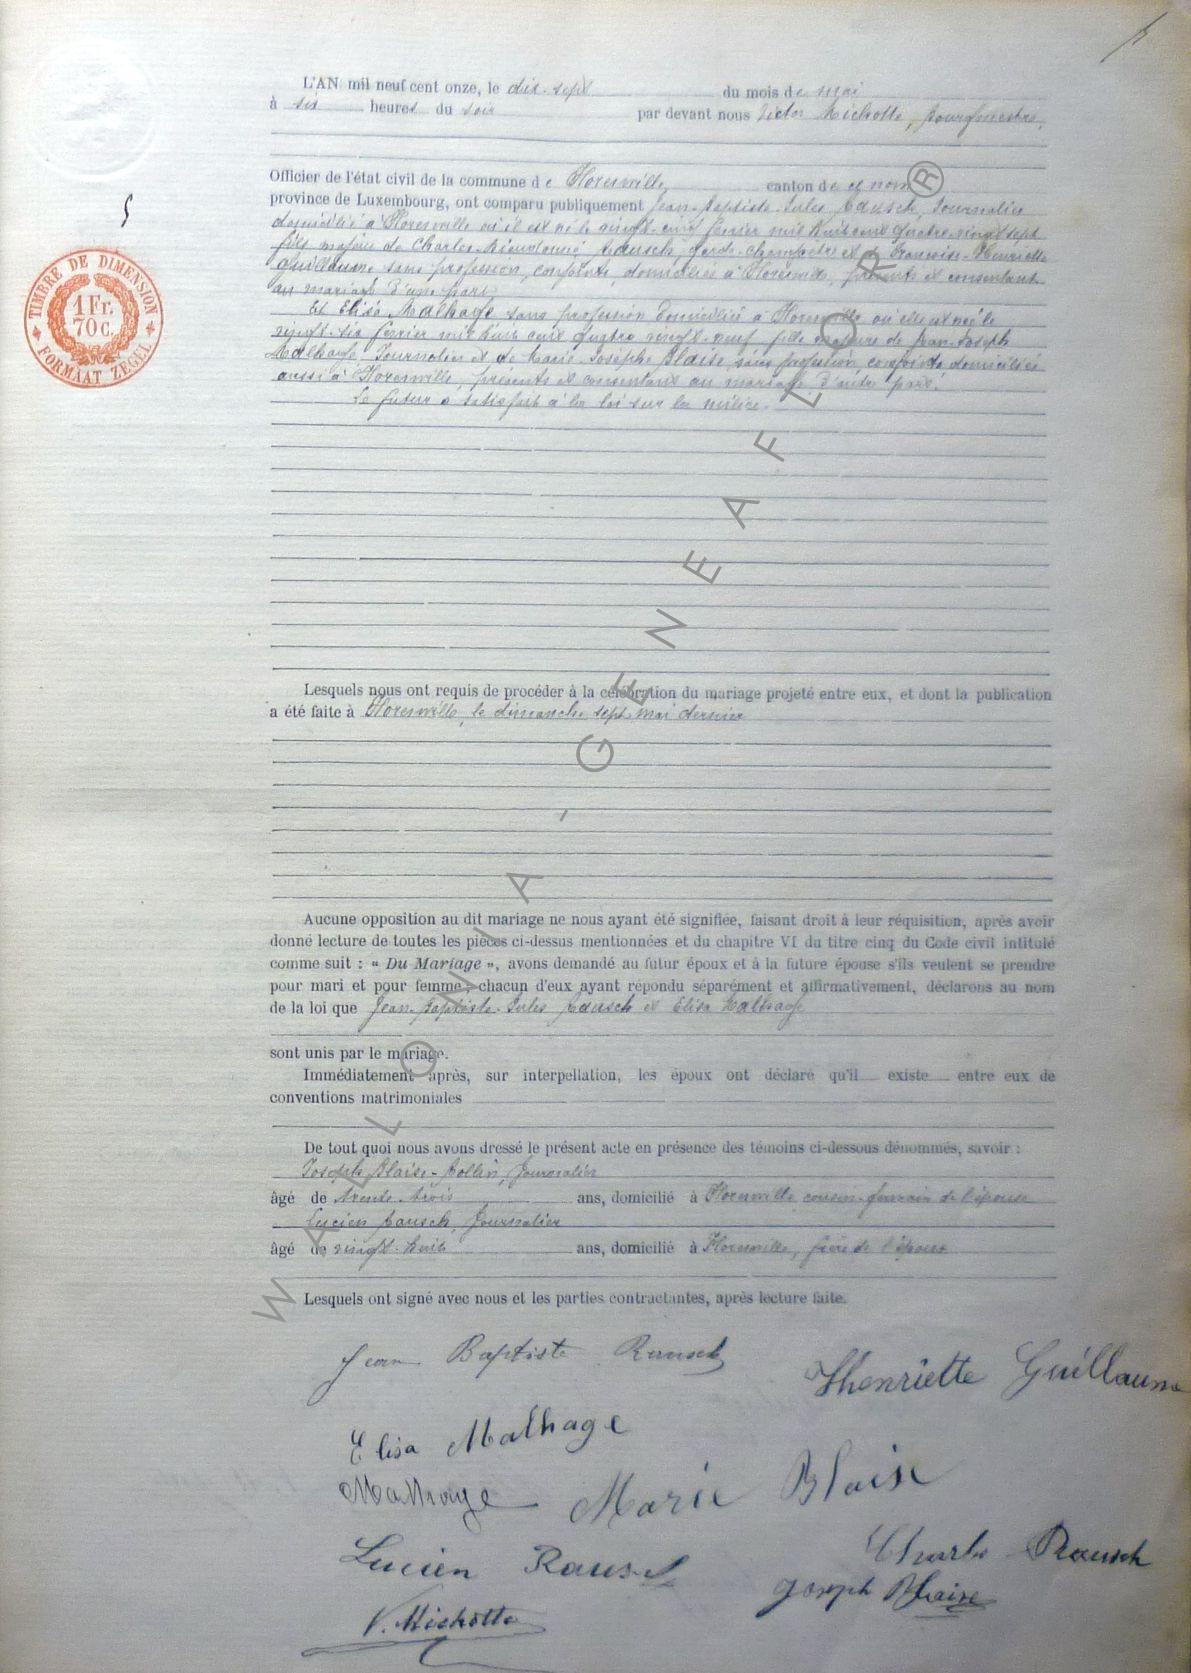 5
TIMBRE DE DIMENSION
1 Fr.
70 c.
FORMAAT ZEGEL
L'AN mil neuf cent onze, le dix-sept du mois de mai
à six heures du soir par devant nous Victor Michotte, bourgmestre,
Officier de l'état civil de la commune de Florenville, canton de ce nom
province de Luxembourg, ont comparu publiquement Jean-Baptiste-Jules Rausch, Journalier
domicilié à Florenville où il est né le vingt-cinq février mil huit cent quatre vingt sept
fils majeur de Charles-Dieudonné Rausch, garde-champêtre et de Françoise-Henriette
Guillaume sans profession, conjoints, domiciliés à Florenville, présents et consentant
au mariage d'une part
Et Elisa Malhage sans profession domiciliée à Florenville où elle est née le
vingt-six février mil huit cent quatre vingt-neuf fille majeure de Jean-Joseph
Malhage Journalier et de Marie-Josèphe Blaise, sans profession, conjoints domiciliés
aussi à Florenville, présents et consentant au mariage d'autre part.
Le futur a satisfait à la loi sur la milice.
Lesquels nous ont requis de procéder à la célébration du mariage projeté entre eux, et dont la publication
a été faite à Florenville, le dimanche sept mai dernier
Aucune opposition au dit mariage ne nous ayant été signifiée, faisant droit à leur réquisition, après avoir
donné lecture de toutes les pièces ci-dessus mentionnées et du chapitre VI du titre cinq du Code civil intitulé
comme suit : « Du Mariage », avons demandé au futur époux et à la future épouse s'ils veulent se prendre
pour mari et pour femme, chacun d'eux ayant répondu séparément et affirmativement, déclarons au nom
de la loi que Jean-Baptiste-Jules Rausch et Elisa Malhage
sont unis par le mariage.
Immédiatement après, sur interpellation, les époux ont déclaré qu'il existe entre eux de
conventions matrimoniales
De tout quoi nous avons dressé le présent acte en présence des témoins ci-dessous dénommés, savoir :
Joseph Blaise-Rollin, Journalier
âgé de trente-trois ans, domicilié à Florenville cousin-germain de l'épouse
Lucien Rausch, Journalier
âgé de vingt-huit ans, domicilié à Florenville, frère de l'époux
Lesquels ont signé avec nous et les parties contractantes, après lecture faite.
Jean Baptiste Rausch
Henriette Guillaume
Elisa Malhage
Malhage Marie Blaise
Lucien Rausch
Charles Rausch
Joseph Blaise
V. Michotte
WALLONIA-GENEAFLOR ®